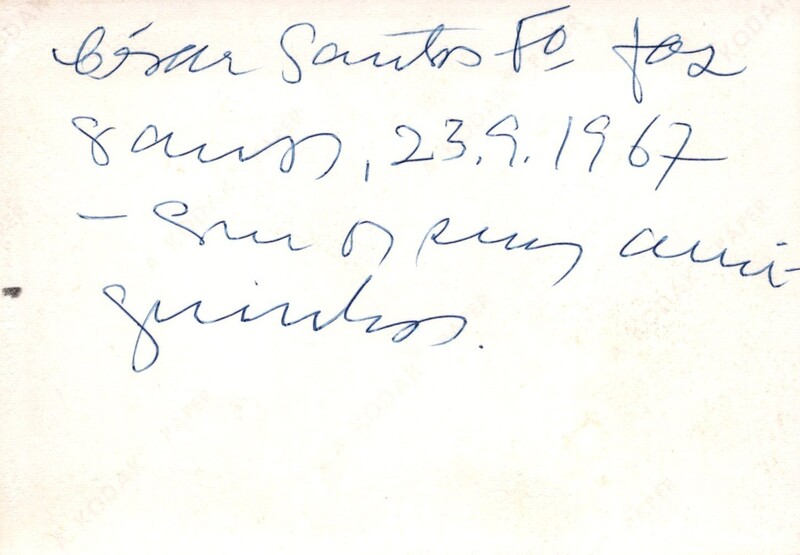 César Santos Fº faz
8 anos, 23.9.1967
- Com os seus ami-
guinhos.